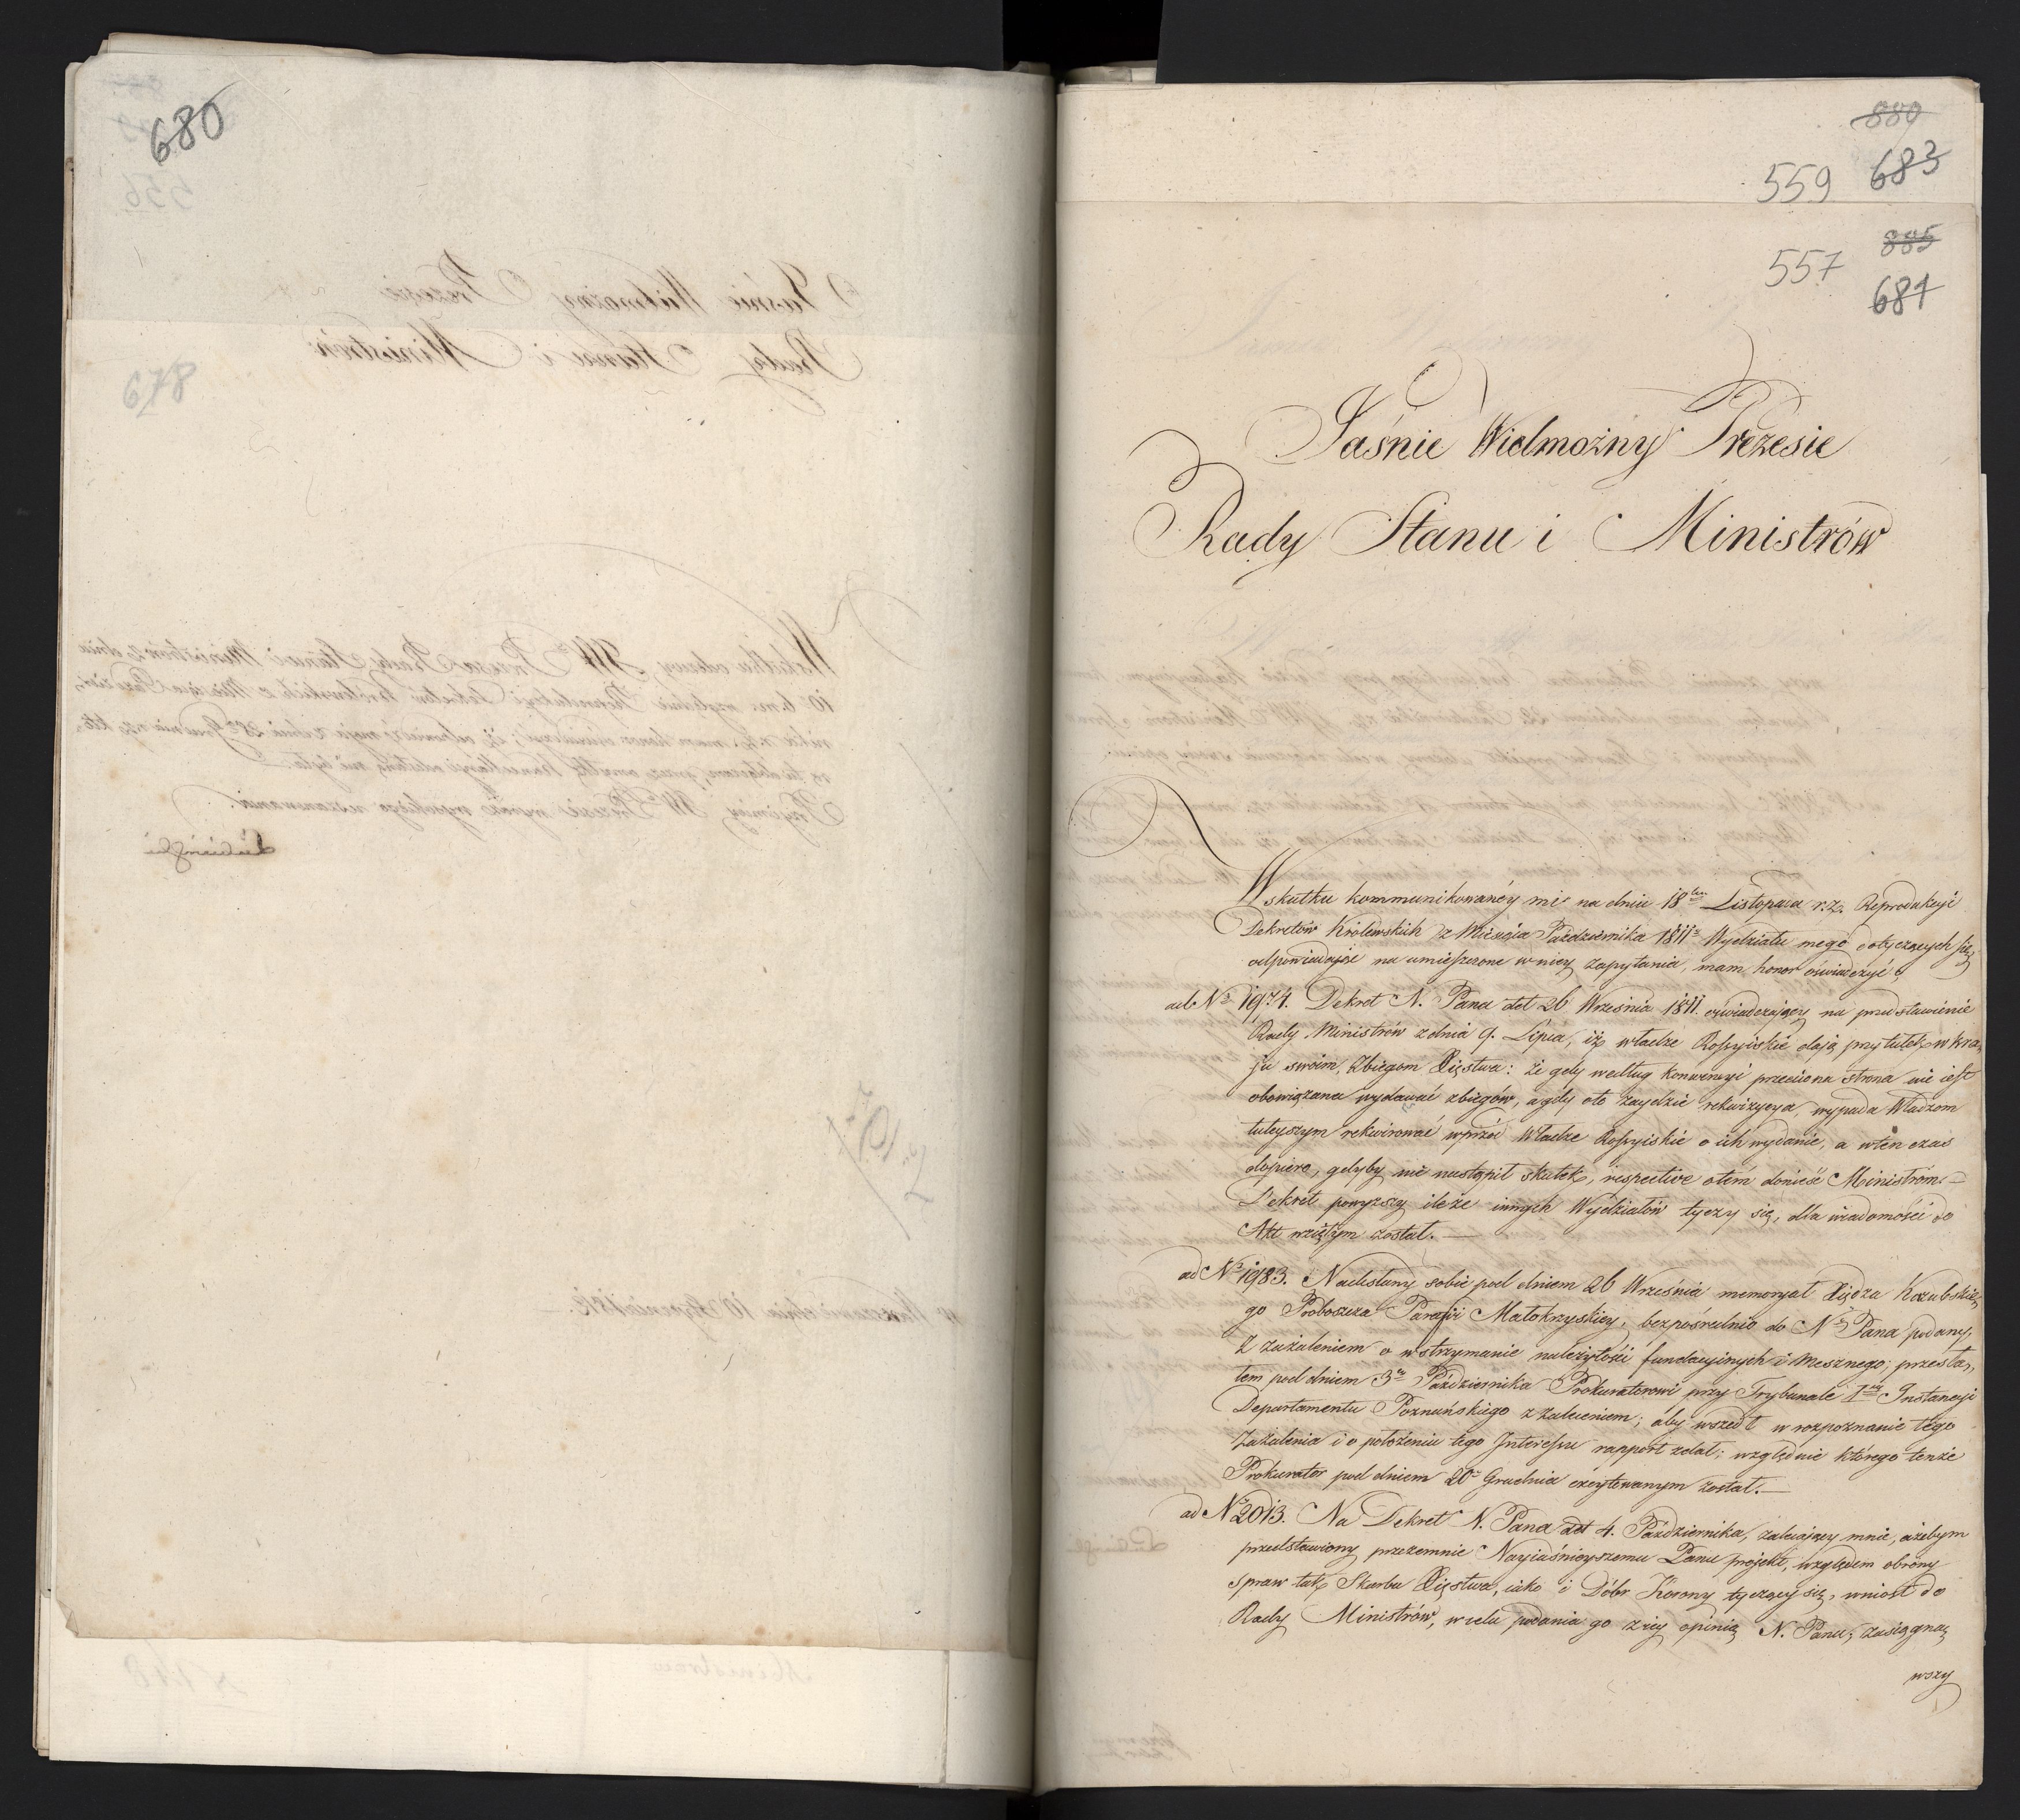 680
678
880
559 683
885
557 681
Jaśnie Wielmożny Prezesie
Rady Stanu i Ministrów
W skutku kommunikowanéy mi na dniu 18tm Listopada r.z. Reprodukcyi
Dekretów Królewskich z Miesiąca Października 1811 Wydziału mego dotyczących się,
odpowiadaiąc na umieszczone w niey zapytania, mam honor oświadczyć
ad No 1974. Dekret N. Pana det 26 Września 1811. oświadczaiący na przedstawienie
Rady Ministrów z dnia 9. Lipca, iż władze Rossyiskie daią przytułek w kra,
ju swoim, zbiegom Xięstwa: że gdy według konwencyi przeciwna strona nie iest
obowiązana wydawać zbiegów, a gdy oto zaydzie rekwizycya, wypada Władzom
tuteyszym rekwirować wprzód Władze Rossyiskie o ich wydanie, a wten czas
dopiero, gdyby nie nastąpił skutek, respective otém donieść Ministróm.—
Dekret powyższy ileże innych Wydziałów tyczy się, dla wiadomości do
Akt wziętym został.—
ad No 1983. Nadesłany sobie pod dniem 26 Września memoryał Xiędza Kozubskie,
go Proboszcza Parafii Małokrzyskiey, bezpośrednio do No Pana podany,
z zażaleniem o wstrzymanie należytości fundacyinych i Mesznego; przesła,,
łem pod dniem 3o Października Prokuratorowi przy Trybunale 1ey Instancyi
Departamentu Poznańskiego z zaleceniem; aby wszedł w rozpoznanie tego
Zażalenia i o położeniu tego Interessu rapport zdał; względnie którego tenże
Prokurator pod dniem 20o Grudnia excytowanym został.—
ad No 2013. Na Dekret N. Pana det 4. Października, zalecaiący mnie, ażebym
przedstawiony przezemnie Nayiaśnieyszemu Panu projekt, względem obrony
spraw tak Skarbu Xięstwa, iako i Dóbr Korony tyczący się, wniosł do
Rady Ministrów, w celu podania go z iey opinią N. Panu; zasiągną,
wszy